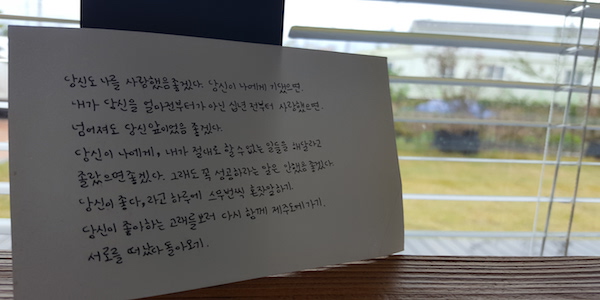 당신도 나를 사랑했음 좋겠다. 당신이 나에게 기댔으면.
내가 당신을 얼마전부터가 아닌 십년 전부터 사랑했으면.
넘어져도 당신 앞이었음 좋겠다.
당신이 나에게, 내가 절대로 할 수 없는 일들을 해달라고
졸랐으면 좋겠다. 그래도 꼭 성공하라는 말은 안했음 좋겠다.
당신이 좋다, 라고 하루에 스무번씩 혼잣말하기.
당신이 좋아하는 고래를 보러 다시 함께 제주도에 가기.
서로를 떠났다 돌아오기.